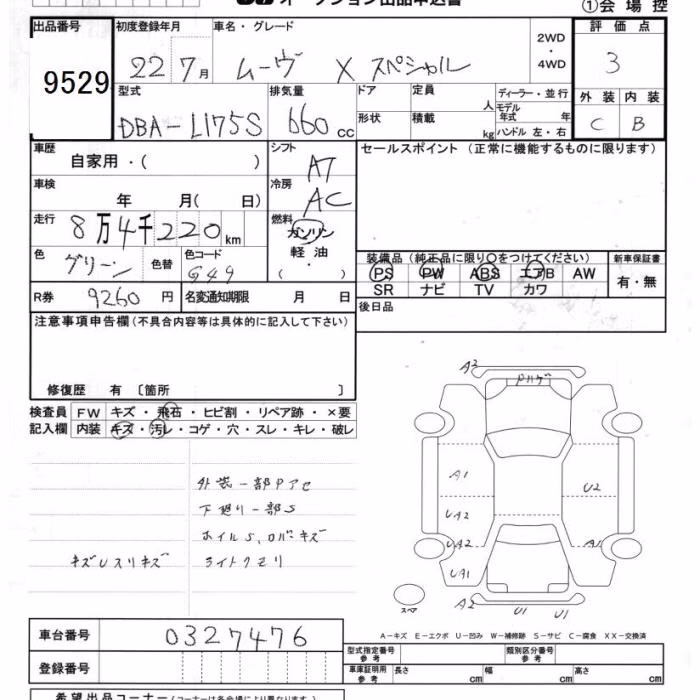 オークション出品申込書
①会場控
出品番号 9529
初度登録年月 22 7月
車名・グレード ムーヴ X スペシャル
2WD・4WD
評価点 3
型式 DBA-L175S
排気量 660cc
ドア 定員 人
形状 積載 kg
ディーラー・並行
モデル年式 年
ハンドル 左・右
外装 内装
C B
車歴 自家用・( )
シフト AT
セールスポイント (正常に機能するものに限ります)
車検 年 月( 日)
冷房 AC
走行 8万4千220km
燃料 ガソリン 軽油 ( ・ )
色 グリーン 色替
色コード G49
装備品 (純正品に限り〇をつけてください)
新車保証書
PS PW ABS エアB AW
SR ナビ TV カワ
有・無
R券 9260円
名変通知期限 月 日
後日品
注意事項申告欄 (不具合内容等は具体的に記入して下さい)
修復歴 有 〔箇所 〕
検査員記入欄
FW キズ・飛石・ヒビ割・リペア跡・×要
内装 キズ・汚レ・コゲ・穴・スレ・キレ・破レ
外装一部Pアセ
下廻り一部S
ホイルS、ロバーキズ
キズUスリキズ ライトクモリ
A2
A1
U2
UA2
UA2
A1
UA1
A2
U1
U1
スペア
A-キズ E-エクボ U-凹み W-補修跡 S-サビ C-腐食 XX-交換済
車台番号 0327476
登録番号
型式指定番号 参考
類別区分番号 参考
車庫証明用 参考 長さ cm 幅 cm 高さ cm
希望出品コーナー (コーナーは各会場により異なります)